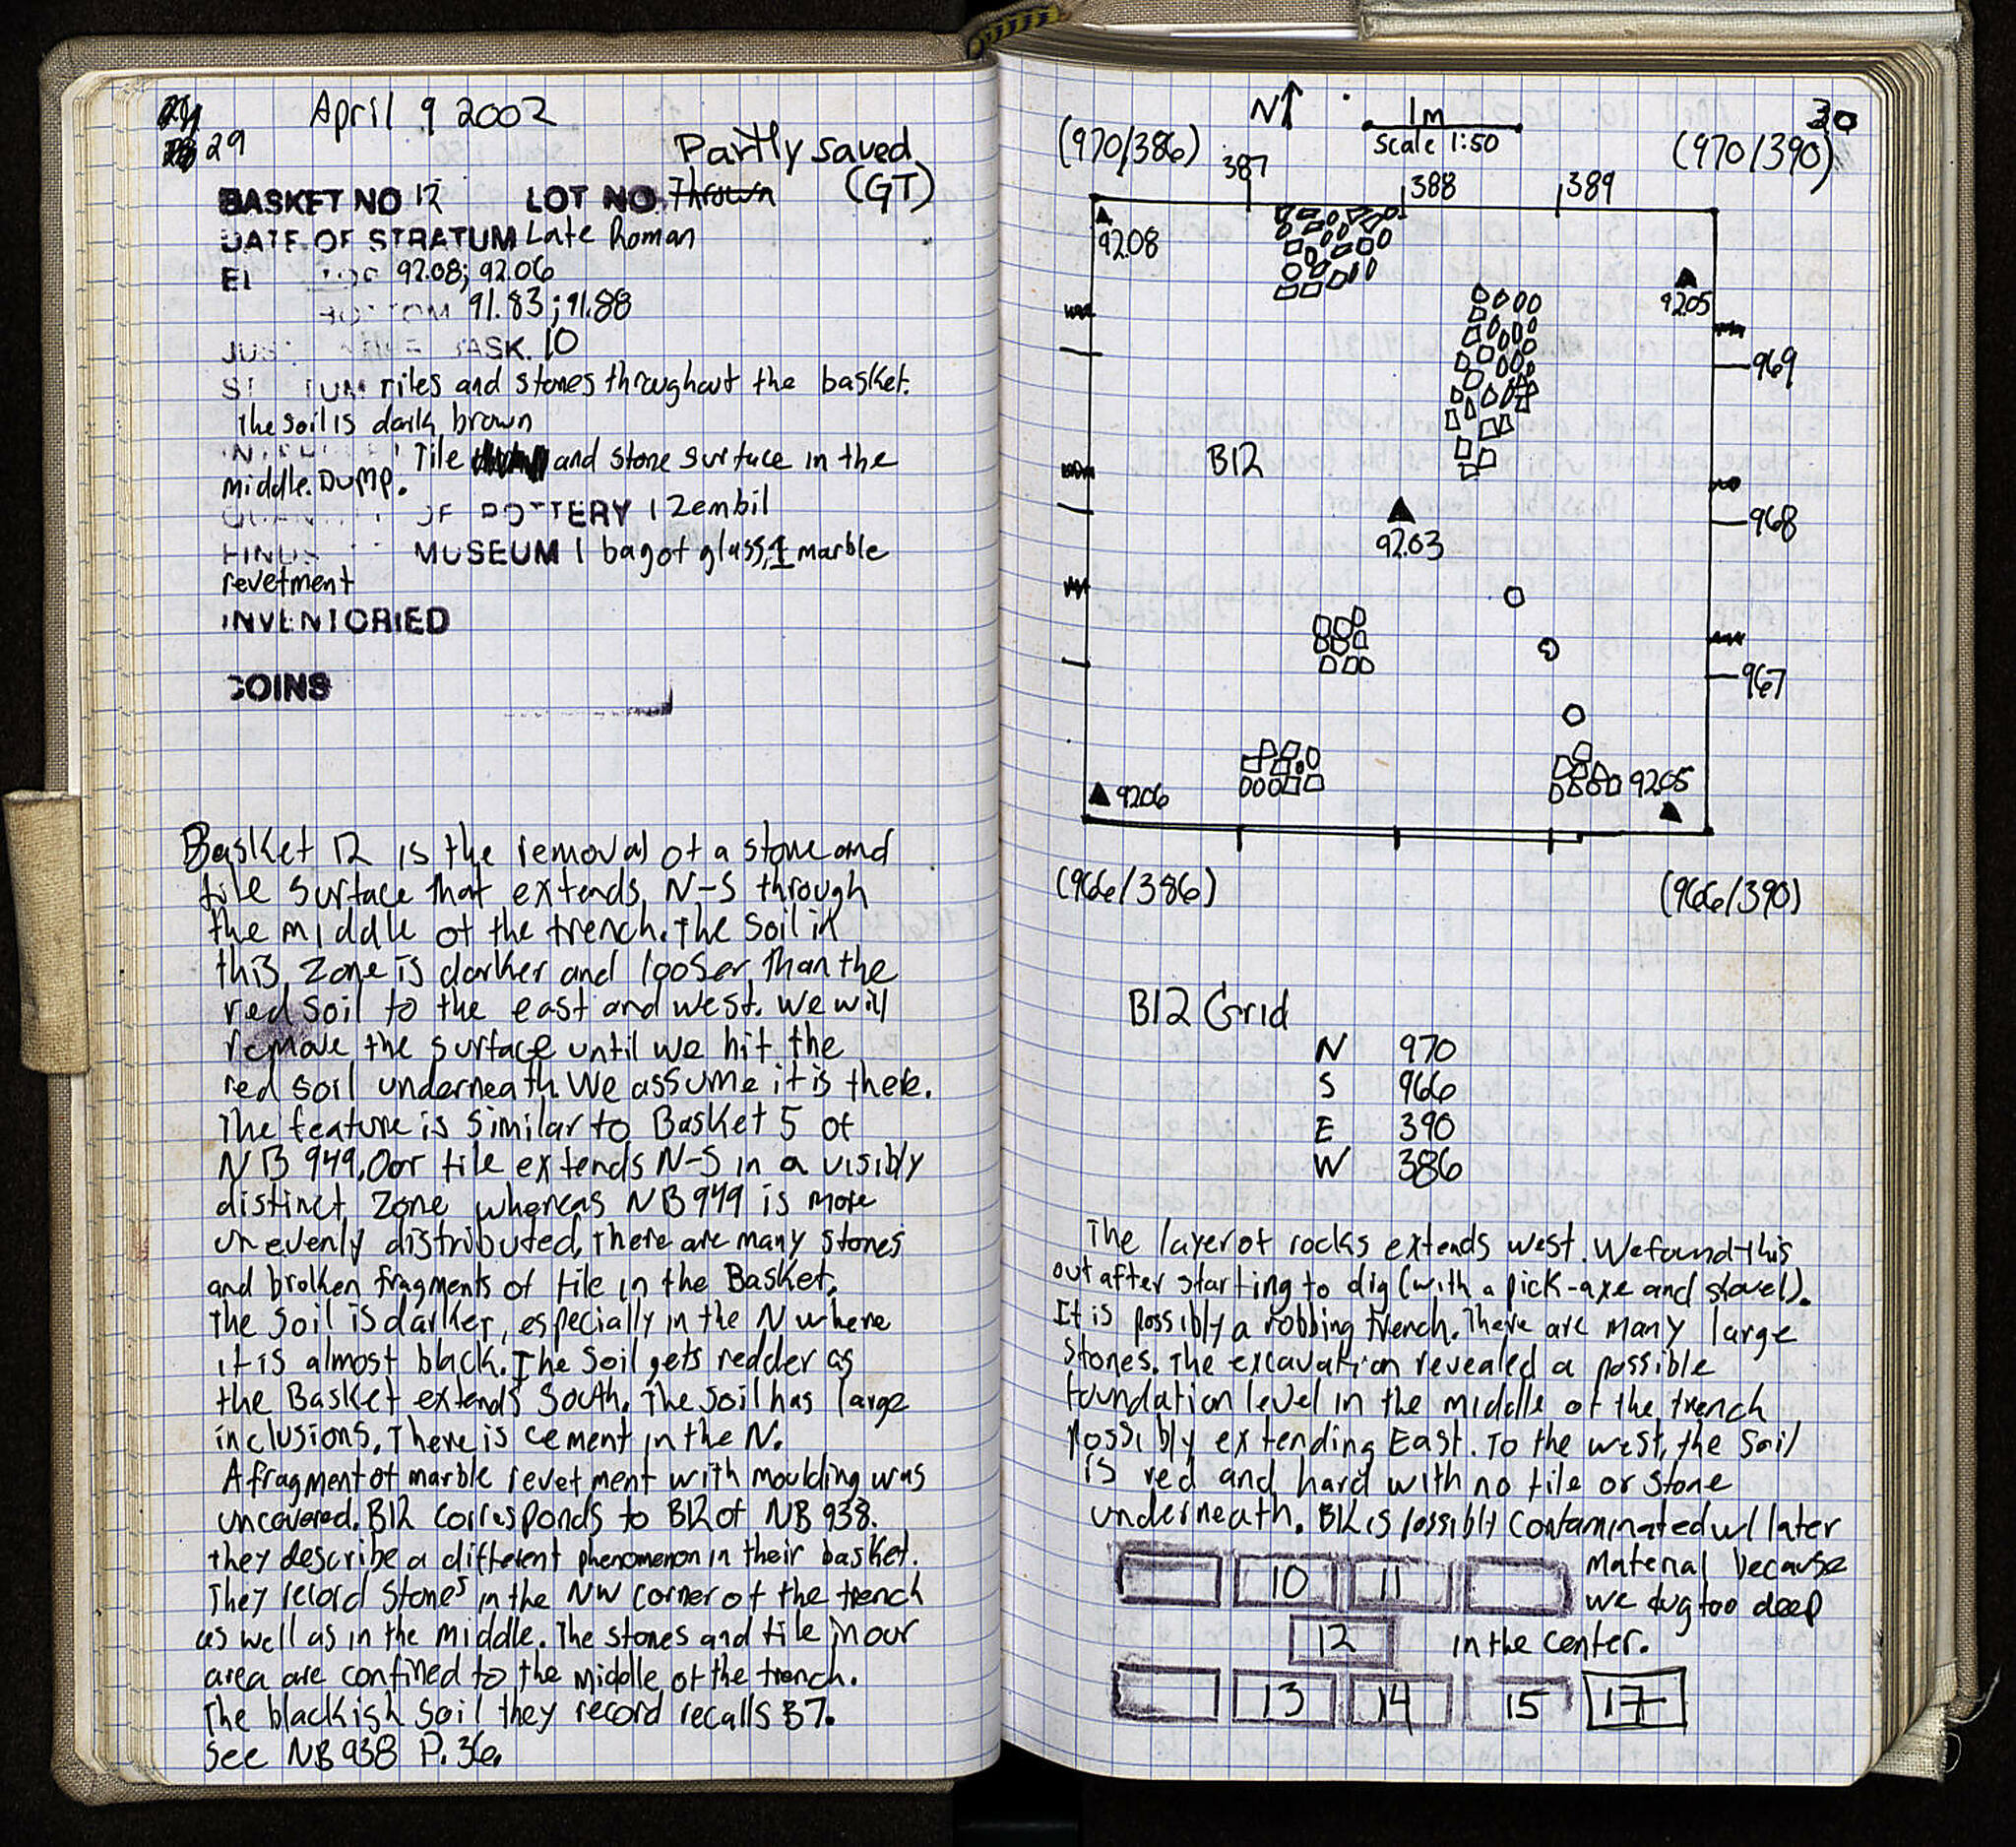 29
April 9 2002
Partly saved
(GT)
BASKET NO 12 LOT NO. Thrown
DATE OF STRATUM Late Roman
EL 92.08; 92.06
BOTTOM 91.83; 91.88
BASK. 10
tiles and stones throughout the basket.
The soil is dark brown
Tile and stone surface in the
middle. Dump.
OF POTTERY 1 Zembil
FINDS MUSEUM 1 bag of glass, 1 marble
revetment
INVENTORIED
COINS
Basket 12 is the removal of a stone and
tile surface that extends N-S through
the middle of the trench. The soil in
this zone is darker and looser than the
red soil to the east and west. We will
remove the surface until we hit the
red soil underneath. We assume it is there.
The feature is similar to Basket 5 of
NB 949. Our tile extends N-S in a visibly
distinct zone whereas NB 949 is more
unevenly distributed. There are many stones
and broken fragments of tile in the Basket.
The soil is darker, especially in the N where
it is almost black. The soil gets redder as
the Basket extends South. The soil has large
inclusions. There is cement in the N.
A fragment of marble revetment with moulding was
uncovered. B12 corresponds to B12 of NB 938.
They describe a different phenomenon in their basket.
They record stones in the NW corner of the trench
as well as in the middle. The stones and tile in our
area are confined to the middle of the trench.
The blackish soil they record recalls B7.
See NB 938 P. 36.
30
N 1m
Scale 1:50
(970/386) 387 388 389 (970/390)
92.08
92.05
969
B12
968
92.03
967
92.06
92.05
(966/386) (966/390)
B12 Grid
N 970
S 966
E 390
W 386
The layer of rocks extends west. We found this
out after starting to dig (with a pick-axe and shovel).
It is possibly a robbing trench. There are many large
stones. The excavation revealed a possible
foundation level in the middle of the trench
possibly extending East. To the west, the soil
is red and hard with no tile or stone
underneath. B12 is possibly contaminated w/ later
material because
we dug too deep
in the center.
10 11
12
13 14 15 17